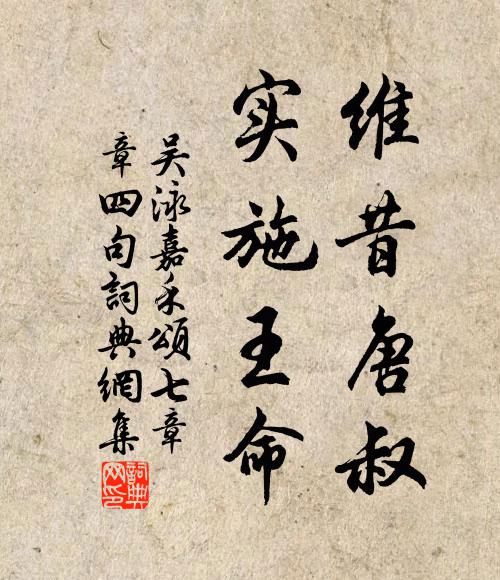 维昔唐叔
实施王命
吴泳嘉禾頌七章
章四句詞典網集
詞典
网印